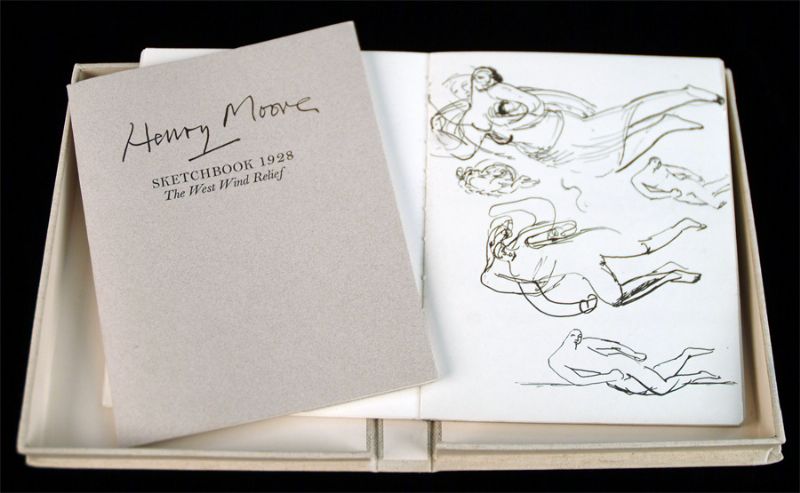 Henry Moore
SKETCHBOOK 1928
The West Wind Relief